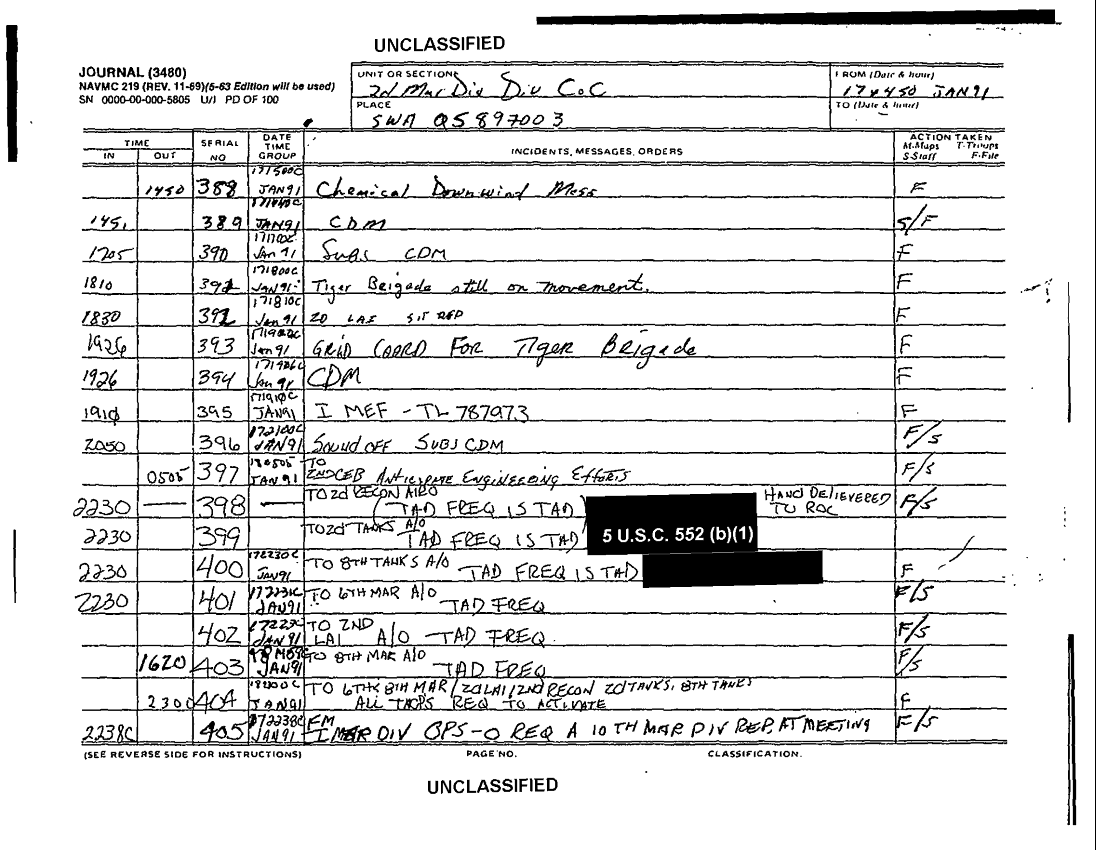 UNCLASSIFIED
JOURNAL (3480)
NAVMC 219 (REV. 11-69)(6-63 Edition will be used)
SN 0000-00-000-5805 U/I PD OF 100
UNIT OR SECTION
2d Mar Div Div CoC
FROM (Date & hour)
171450 JAN91
PLACE
SWA QS897003
TO (Date & hour)
TIME
IN OUT
SERIAL NO
DATE TIME GROUP
INCIDENTS, MESSAGES, ORDERS
ACTION TAKEN
M-Maps T-Troups
S-Staff F-File
1450 388 171500C JAN91 Chemical Downwind Mess F
1451 389 JAN91 CDM S/F
1705 390 171700C Jan 91 Subs CDM F
1810 391 171800C JAN91 Tiger Beigade still on movement. F
1830 392 171810C Jan 91 2D LAI SIT REP F
1926 393 171920C Jan 91 GRID COARD FOR TIGER BRIGADE F
1926 394 171926C Jan 91 CDM F
1910 395 171910C JAN91 I MEF - TL 787973 F
2050 396 172100C JAN91 Sound off SUBS CDM F/S
0505 397 180505 JAN91 TO 2NDCEB ANTICIPATE ENGINEERING EFFORTS F/S
2230 — 398 — TO 2d RECON AIRO (TAD FREQ IS TAD) HAND DELIEVERED TO ROC F/S
2230 399 TO 2d TANKS A/O TAD FREQ IS TAD
5 U.S.C. 552 (b)(1)
2230 400 172230C JAN91 TO 8TH TANKS A/O TAD FREQ IS TAD F
2230 401 172231C JAN91 TO 6TH MAR A/O TAD FREQ F/S
402 JAN 91 TO 2ND LAI A/O TAD FREQ F/S
1620 403 JAN91 TO 8TH MAR A/O TAD FREQ F/S
2300 404 JAN91 TO 6TH & 8TH MAR / 2d LAI / 2nd RECON 2d TANKS, 8TH TANKS
ALL TACPS REQ TO ACTIVATE F
2238C 405 172238C JAN91 FM I MAR DIV OPS-O REQ A 10TH MAR DIV REP. AT MEETING F/S
(SEE REVERSE SIDE FOR INSTRUCTIONS) PAGE NO. CLASSIFICATION.
UNCLASSIFIED